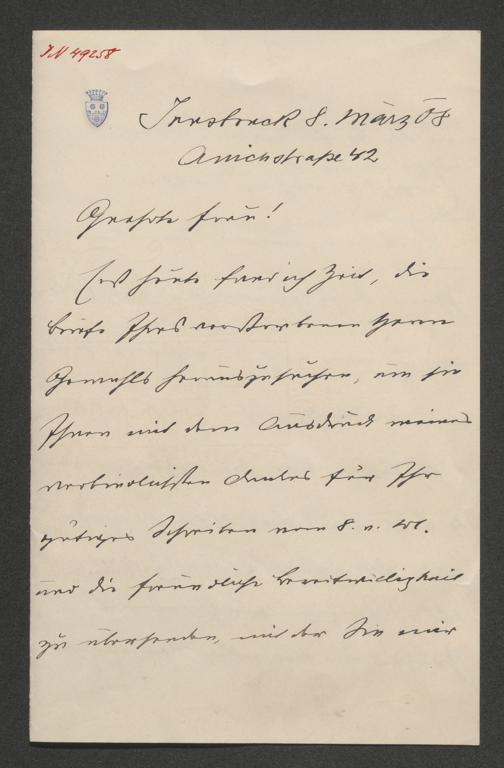 IN 49258
Innsbruck 8. März 08
Anichstraße 42
Geehrte Frau!
Erst heute fand ich Zeit, die
Briefe Ihres verstorbenen Herrn
Gemahls herauszusuchen, um sie
Ihnen mit dem Ausdruck meines
verbindlichsten Dankes für Ihr
gütiges Schreiben vom 8. v. Mt.
und die freundliche Bereitwilligkeit
zu übersenden, mit der Sie mir